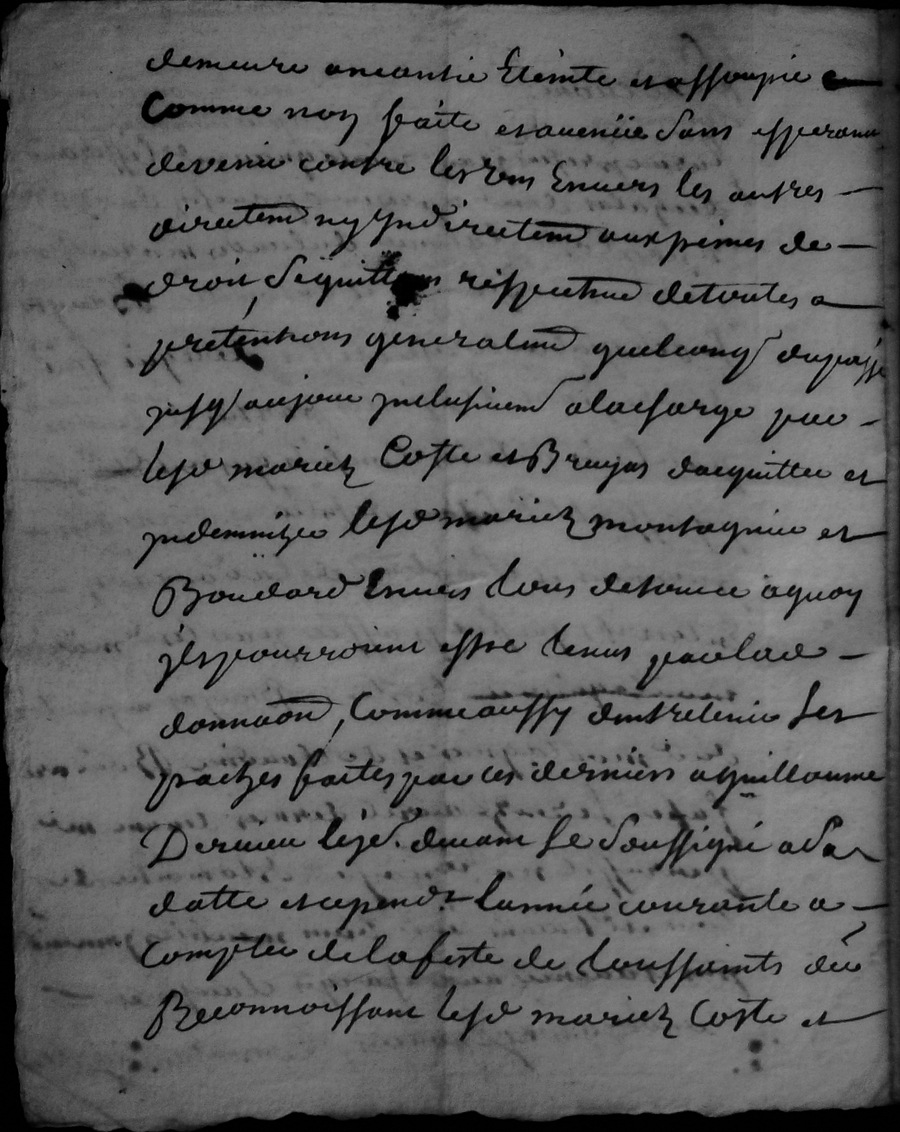 demeure aneantie Eteinte et assoupie
Comme non faite et avenüe Sans esperance
devenir contre les Uns Envers les autres
directemt ny Indirectemt aux peines de
droit, Se quittans respectivemt de toutes
pretentions generalemt quelconqs du passé
jusqs aujour Inclusivemt a la charge par
lesd mariez Coste et Bruyas dacquitter et
Indemnizer lesd mariez montagnier et
Boudard Envers tous de tout ce a quoy
Ils pourroient estre tenus par lad
donnaon, Comme aussy dentretenir Les
pactzes faites par ces derniers a guillaume
Derieu devant Le Soussigné a Sa
datte et ce pendt Lannée courante a
Compter de la feste de toussaints der
Reconnoissant lesd mariez Coste et